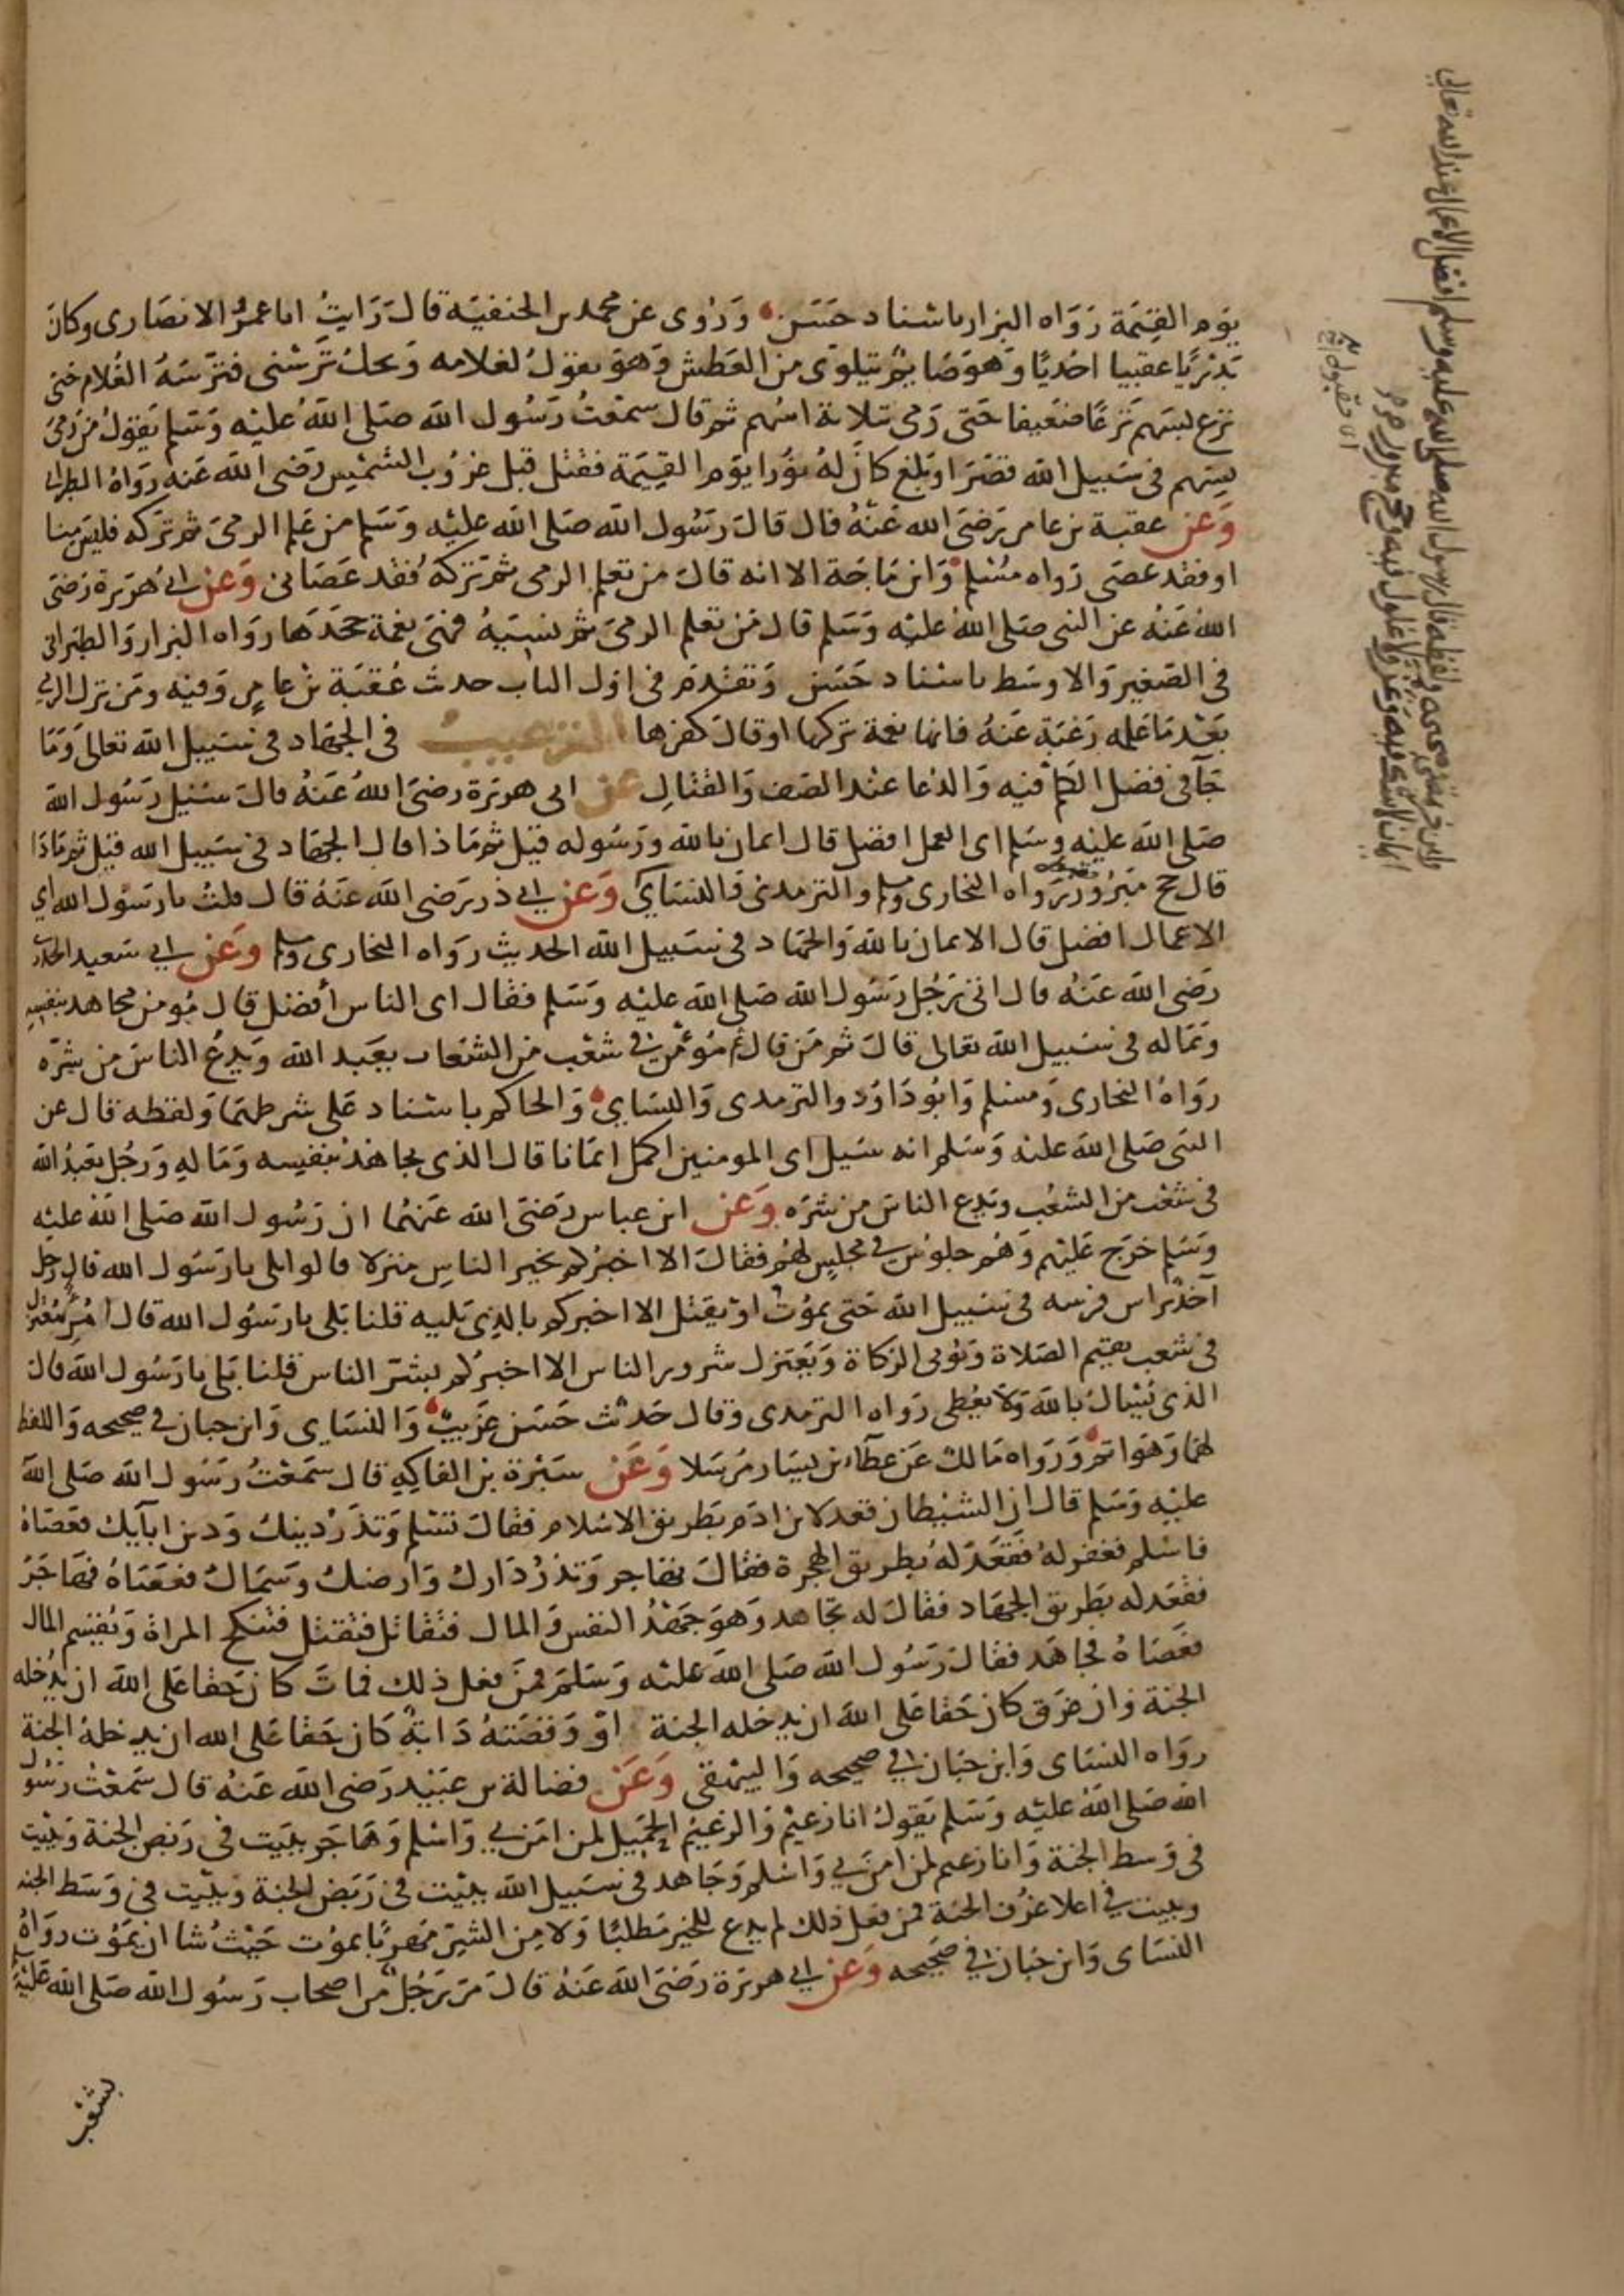 يوم القيمة رواه البزار باسناد حسن وروى عن محمد بن الحنفية قال رايت ابا عمرو الانصارى وكان
بدريا عقبيا احديا وهو صايم يتلوى من العطش وهو يقول لغلامه ويحك ترسنى فترسه الغلام حتى
نزع بسهم نزعا ضعيفا حتى رمى بثلاثة اسهم ثم قال سمعت رسول الله صلى الله عليه وسلم يقول من رمى
بسهم فى سبيل الله فقصر او بلغ كان له نورا يوم القيمة فقتل قبل غروب الشمس رضى الله عنه رواه الطبرانى
وعن عقبة بن عامر رضى الله عنه قال قال رسول الله صلى الله عليه وسلم من علم الرمى ثم تركه فليس منا
او فقد عصى رواه مسلم وابن ماجة الا انه قال من تعلم الرمى ثم تركه فقد عصانى وعن ابى هريرة رضى
الله عنه عن النبى صلى الله عليه وسلم قال من تعلم الرمى ثم نسيه فهى نعمة جحدها رواه البزار والطبرانى
فى الصغير والاوسط باسناد حسن وتقدم فى اول الباب حديث عقبة بن عامر وفيه ومن ترك الرمى
بعد ما علمه رغبة عنه فانها نعمة تركها او قال كفرها الترغيب فى الجهاد فى سبيل الله تعالى وما
جآ فى فضل الكلم فيه والدعا عند الصف والقتال عن ابى هريرة رضى الله عنه قال سئيل رسول الله
صلى الله عليه وسلم اى العمل افضل قال ايمان بالله ورسوله قيل ثم ماذا قال الجهاد فى سبيل الله قيل ثم ماذا
قال حج مبرور رواه البخارى ومسلم والترمدى والنساى وعن ابى ذر رضى الله عنه قال قلت يا رسول الله اى
الاعمال افضل قال الايمان بالله والجهاد فى سبيل الله الحديث رواه البخارى ومسلم وعن ابى سعيد الخدرى
رضى الله عنه قال اتى رجل رسول الله صلى الله عليه وسلم فقال اى الناس أفضل قال مومن مجاهد بنفسه
وبماله فى سبيل الله تعالى قال ثم من قال ثم مؤمن فى شعب من الشعاب يعبد الله ويدع الناس من شره
رواه البخارى ومسلم وابو داود والترمدى والنساي والحاكم باسناد على شرطهما ولفظه قال عن
النبى صلى الله عليه وسلم انه سئيل اى المومنين اكمل ايمانا قال الذى يجاهد بنفسه وماله ورجل يعبد الله
فى شعب من الشعب ويدع الناس من شره وعن ابن عباس رضى الله عنهما ان رسول الله صلى الله عليه
وسلم خرج عليهم وهم جلوس فى مجلس لهم فقال الا اخبركم بخير الناس منزلا قالوا بلى يا رسول الله قال رجل
آخذ براس فرسه فى سبيل الله حتى يموت او يقتل الا اخبركم بالذى يليه قلنا بلى يا رسول الله قال امرؤ معتزل
فى شعب يقيم الصلاة ويوتى الزكاة ويعتزل شرور الناس الا اخبركم بشر الناس قلنا بلى يا رسول الله قال
الذى يسال بالله ولا يعطى رواه الترمدى وقال حديث حسن غريب والنساى وابن حبان فى صحيحه واللفظ
لهما وهو اتم ورواه مالك عن عطاء بن يسار مرسلا وعن سبرة بن الفاكه قال سمعت رسول الله صلى الله
عليه وسلم قال ان الشيطان قعد لابن ادم بطريق الاسلام فقال تسلم وتذر دينك ودين ابآيك فعصاه
فاسلم فغفر له فقعد له بطريق الهجرة فقال تهاجر وتذر دارك وارضك وسماك فعصاه فهاجر
فقعد له بطريق الجهاد فقال له تجاهد وهو جهد النفس والمال فتقاتل فتقتل فتنكح المراة ويقسم المال
فعصاه فجاهد فقال رسول الله صلى الله عليه وسلم فمن فعل ذلك فمات كان حقا على الله ان يدخله
الجنة وان غرق كان حقا على الله ان يدخله الجنة او وقصته دابة كان حقا على الله ان يدخله الجنة
رواه النساى وابن حبان فى صحيحه والبيهقى وعن فضالة بن عبيد رضى الله عنه قال سمعت رسول
الله صلى الله عليه وسلم يقول انا زعيم والزعيم الحميل لمن امن بى واسلم وهاجر ببيت فى ربض الجنة وبيت
فى وسط الجنة وانا زعيم لمن امن بى واسلم وجاهد فى سبيل الله ببيت فى ربض الجنة وببيت فى وسط الجنه
وببيت فى اعلا غرف الجنة فمن فعل ذلك لم يدع للخير مطلبا ولا من الشر مهربا يموت حيث شا ان يموت رواه
النساى وابن حبان فى صحيحه وعن ابى هريرة رضى الله عنه قال مر رجل من اصحاب رسول الله صلى الله عليه وسلم
بشعب
وابن خزيمة فى صحيحه ولفظه قال رسول الله صلى الله عليه وسلم افضل الاعمال عند الله تعالى
ايمان لا شك فيه وغزو لا غلول فيه وحج مبرور
اى مقبول